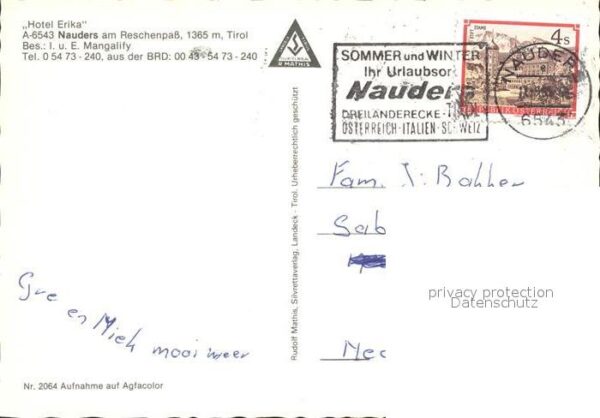 „Hotel Erika"
A-6543 Nauders am Reschenpaß, 1365 m, Tirol
Bes.: I. u. E. Mangalify
Tel. 0 54 73 - 240, aus der BRD: 00 43 - 54 73 - 240
R MATHIS
SOMMER und WINTER
Ihr Urlaubsort
Nauders
TIROL
DREILÄNDERECKE
ÖSTERREICH-ITALIEN-SCHWEIZ
4s
NAUDERS
6543
Rudolf Mathis, Silvrettaverlag, Landeck - Tirol. Urheberrechtlich geschützt
Fam. J: Bakker
Sab
Mec
privacy protection
Datenschutz
en Miek mooi weer
Nr. 2064 Aufnahme auf Agfacolor